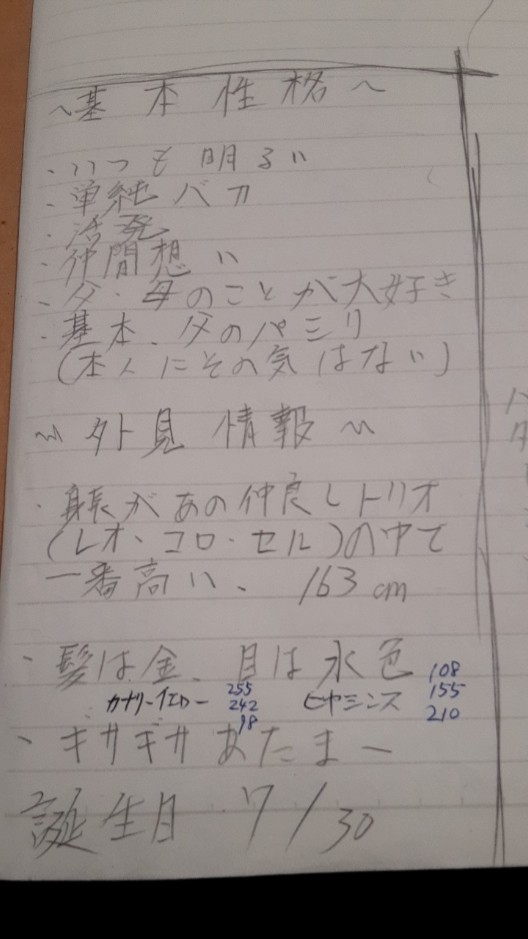 ~基本性格~
・いつも明るい
・単純バカ
・活発
・仲間想い
・父・母のことが大好き
・基本、父のパシリ
(本人にその気はない)
~外見情報~
・身長があの仲良しトリオ
(レオ・コロ・セル)の中で
一番高い、163cm
・髪は金、目は水色
カナリーイエロー 255 242 98
ヒヤシンス 108 155 210
・ギザギザあたまー
誕生日 7/30